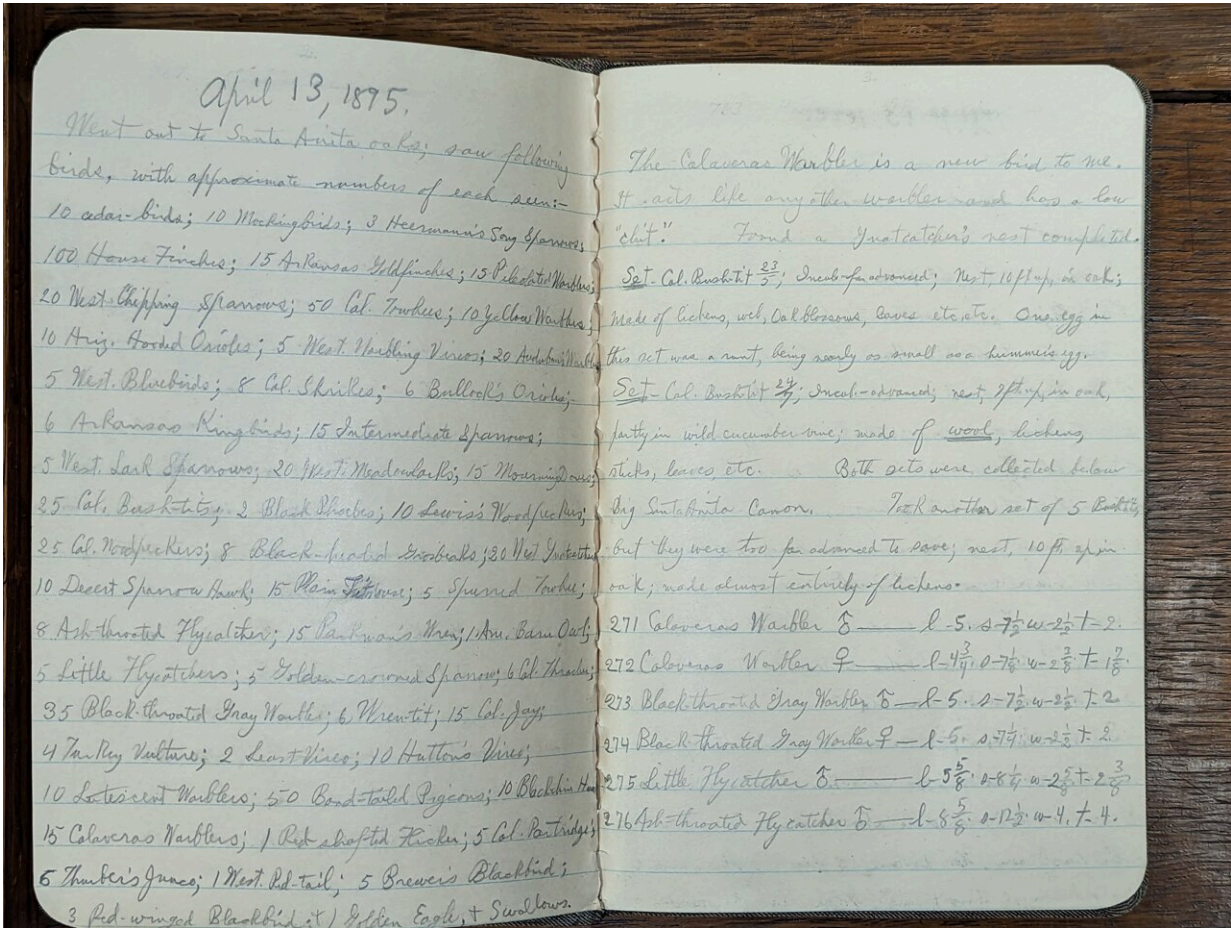 April 13, 1895.
Went out to Santa Anita oaks; saw following
birds, with approximate numbers of each seen:-
10 cedar-birds; 10 Mockingbirds; 3 Heermann's Song Sparrows;
100 House Finches; 15 Arkansas Goldfinches; 15 Pileolated Warblers;
20 West. Chipping Sparrows; 50 Cal. Towhees; 10 Yellow Warblers;
10 Ariz. Hooded Orioles; 5 West. Warbling Vireos; 20 Audubon's Warbl
5 West. Bluebirds; 8 Cal. Shrikes; 6 Bullock's Orioles;
6 Arkansas Kingbirds; 15 Intermediate Sparrows;
5 West. Lark Sparrows; 20 West. Meadowlarks; 15 Mourning Doves;
25 Cal. Bush-tits; 2 Black Phoebes; 10 Lewis's Woodpeckers;
25 Cal. Woodpeckers; 8 Black-headed Grosbeaks; 20 West. Gnatcatchers
10 Desert Sparrow Hawk; 15 Plain Titmouse; 5 Spurred Towhee;
8 Ash-throated Flycatcher; 15 Parkman's Wren; 1 Am. Barn Owl;
5 Little Flycatchers; 5 Golden-crowned Sparrow; 6 Cal. Thrasher;
35 Black-throated Gray Warbler; 6 Wren-tit; 15 Cal. Jay;
4 Turkey Vulture; 2 Least Vireo; 10 Hutton's Vireo;
10 Lutescent Warblers; 50 Band-tailed Pigeons; 10 Blackchin Hum
15 Calaveras Warblers; 1 Red-shafted Flicker; 5 Cal. Partridge;
5 Thurber's Junco; 1 West. Red-tail; 5 Brewer's Blackbird;
3 Red-winged Blackbird; + 1 Golden Eagle, + Swallows.
The Calaveras Warbler is a new bird to me.
It acts like any other warbler and has a low
"chit." Found a Gnatcatcher's nest completed.
Set- Cal. Bush-tit 23/5; Incub-far advanced; nest, 10 ft up, in oak;
made of lichens, web, oak blossoms, leaves etc. etc. One egg in
this set was a runt, being nearly as small as a hummer's egg.
Set- Cal. Bush-tit 24/7; Incub.-advanced; nest, 7 ft up, in oak,
partly in wild cucumber vine; made of wool, lichens,
sticks, leaves, etc. Both sets were collected below
Big Santa Anita Canon. Took another set of 5 Bushtits,
but they were too far advanced to save; nest, 10 ft. up in
oak; made almost entirely of lichens.
271 Calaveras Warbler ♂ — l-5. s-7½. w-2½. t-2.
272 Calaveras Warbler ♀ — l-4¾. s-7⅛. w-2⅜. t-1⅞.
273 Black-throated Gray Warbler ♂ — l-5. s-7½. w-2½. t-2
274 Black-throated Gray Warbler ♀ — l-5. s-7¼. w-2½. t-2.
275 Little Flycatcher ♂ — l-5⅝. s-8¼. w-2⅝. t-2⅜.
276 Ash-throated Flycatcher ♂ — l-8⅝. s-12½. w-4. t-4.